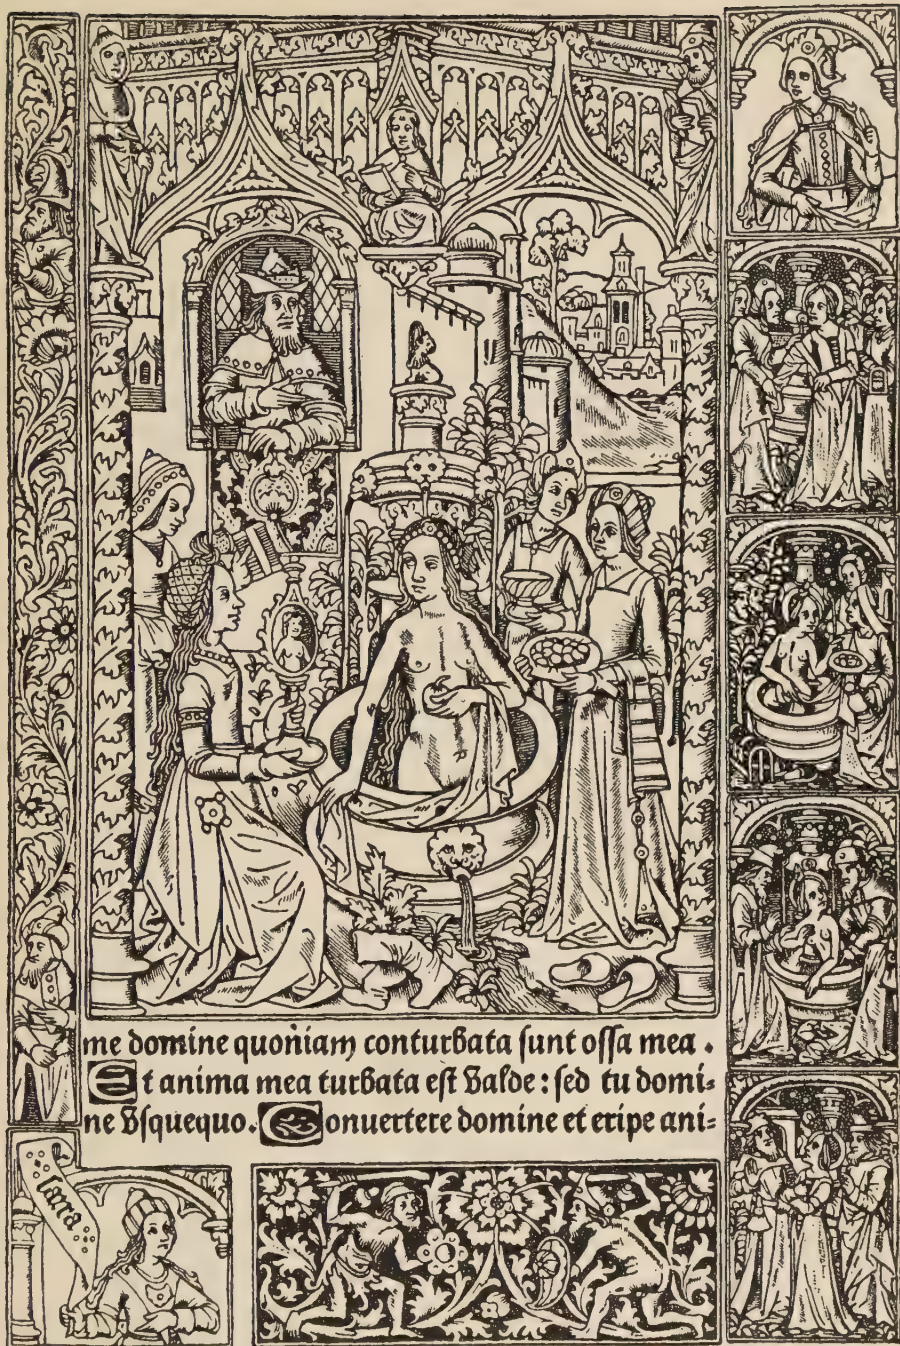 me domine quoniam conturbata sunt ossa mea .
Et anima mea turbata est valde : sed tu domi=
ne vsquequo. Conuertere domine et eripe ani=
sara